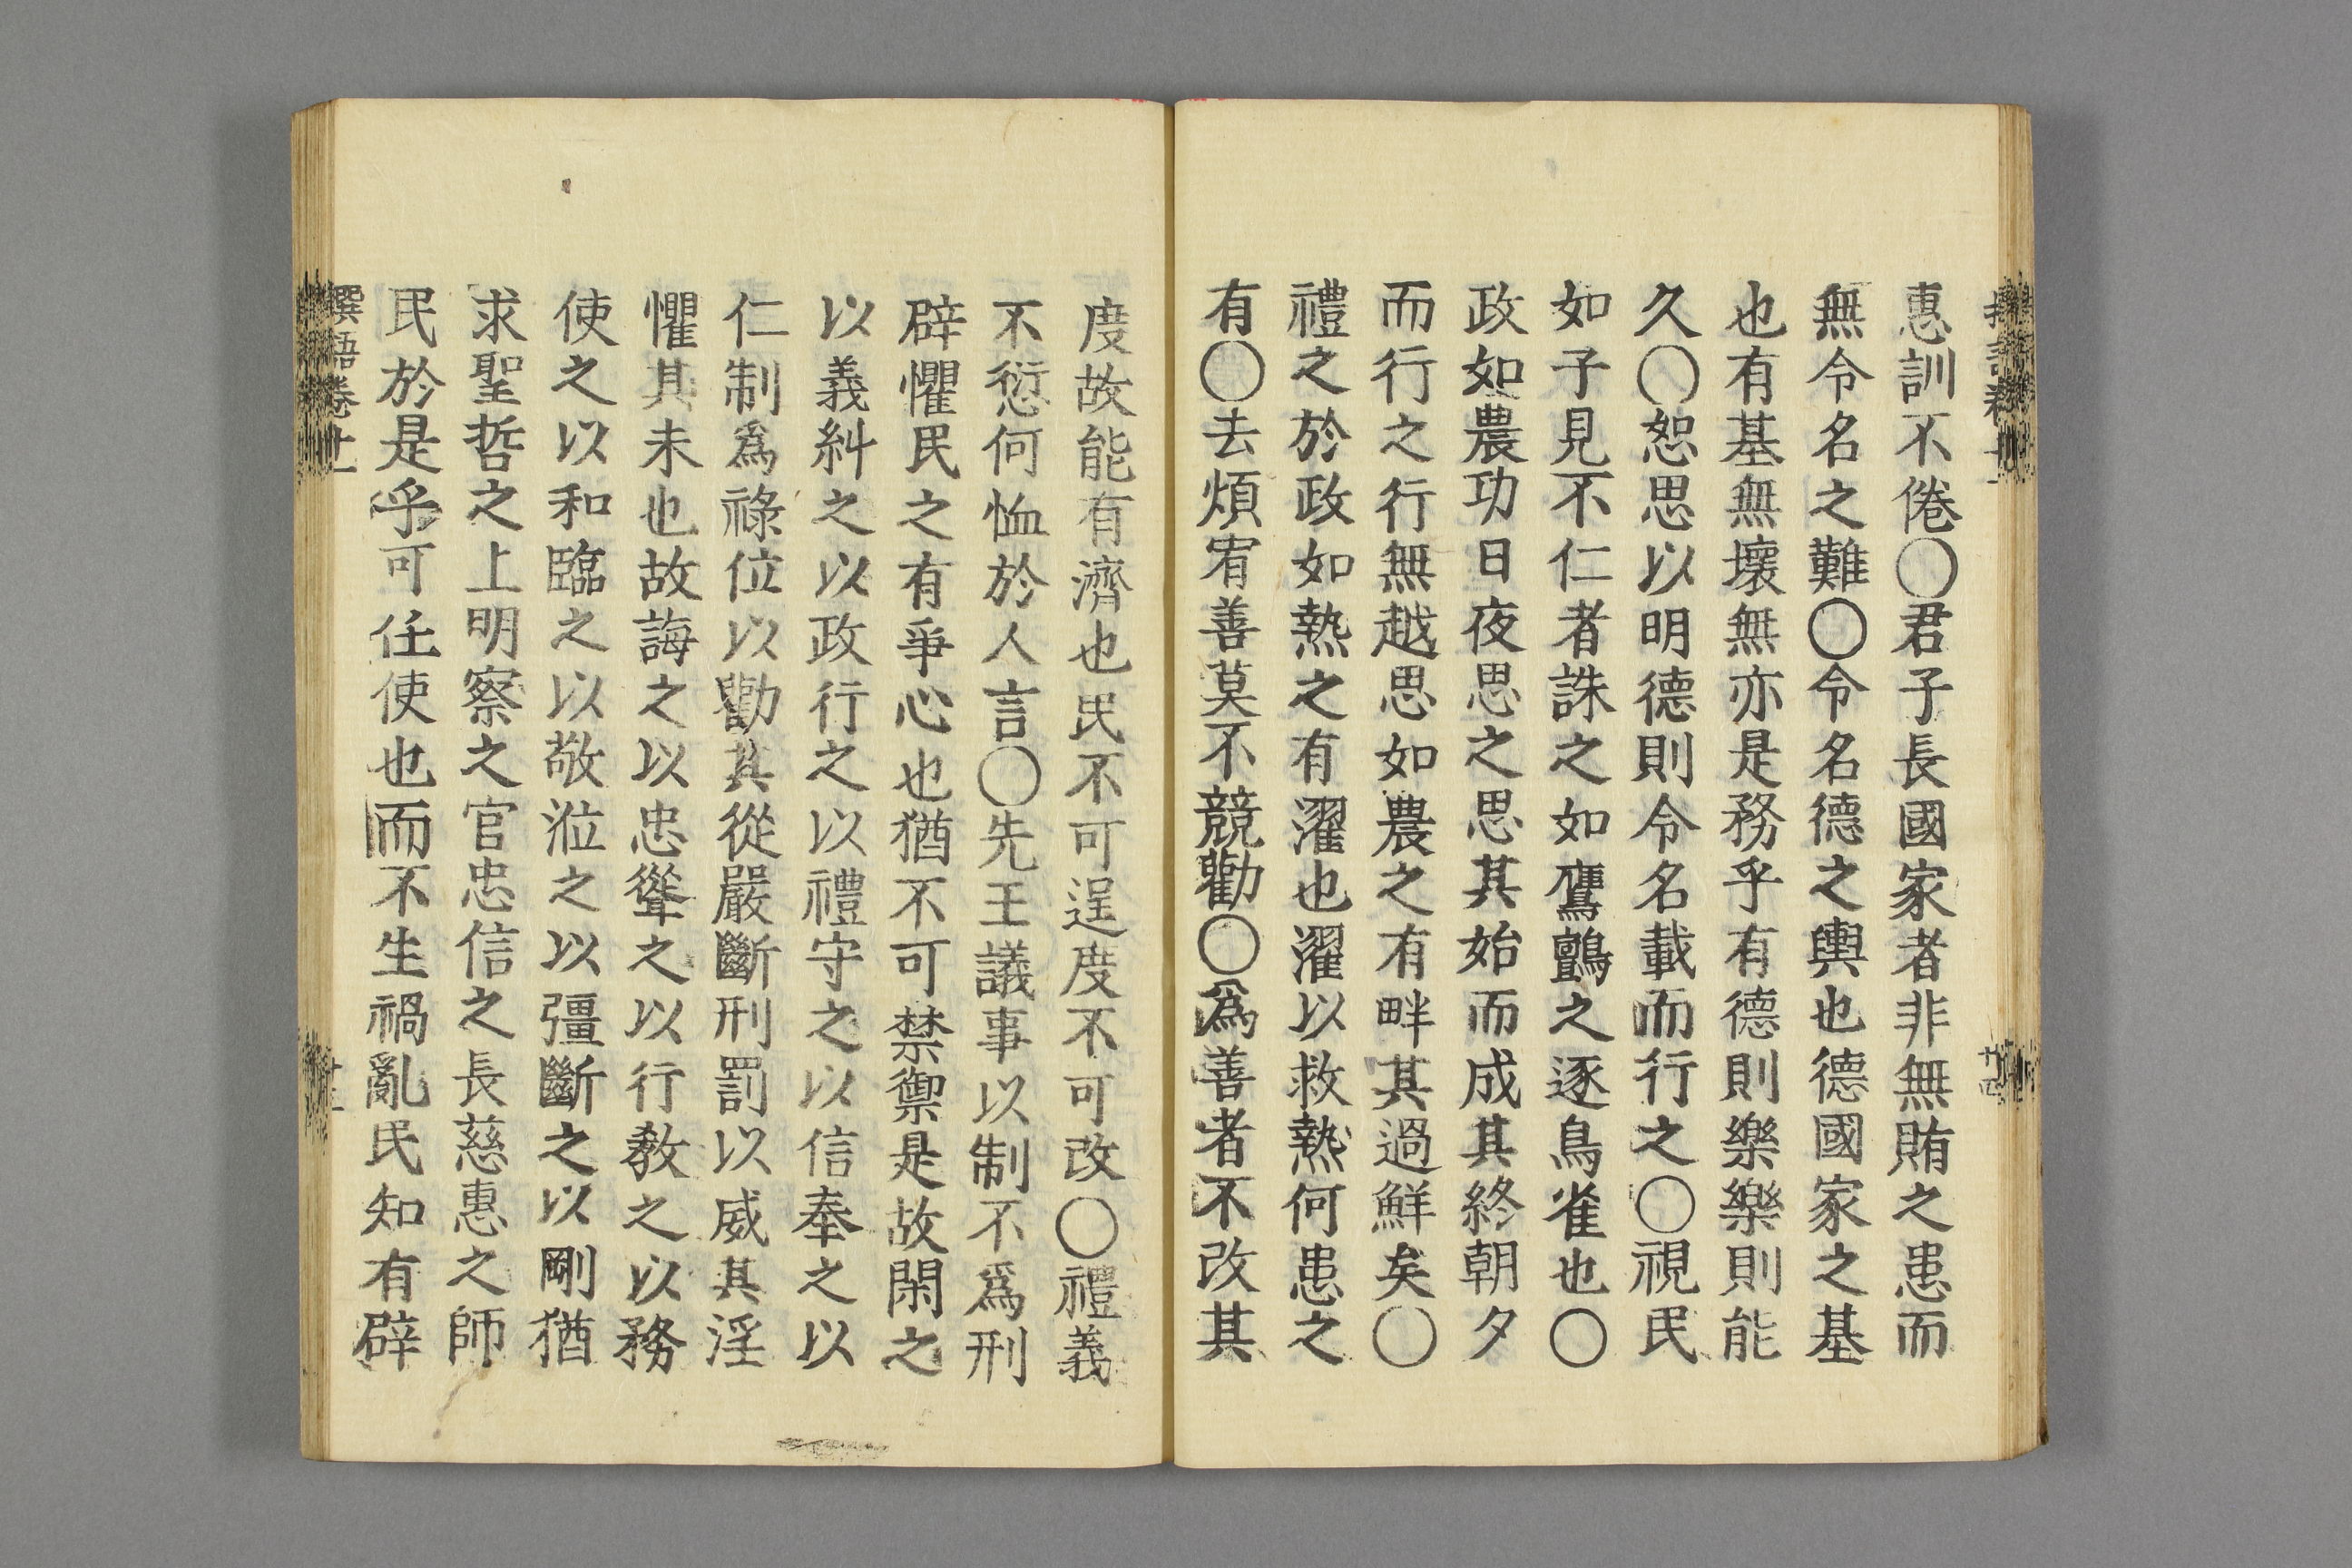 惠訓不倦〇君子長國家者非無賄之患而
無令名之難〇令名德之輿也德國家之基
也有基無壞無亦是務乎有德則樂樂則能
久〇恕思以明德則令名載而行之〇視民
如子見不仁者誅之如鷹鸇之逐鳥雀也〇
政如農功日夜思之思其始而成其終朝夕
而行之行無越思如農之有畔其過鮮矣〇
禮之於政如熱之有濯也濯以救熱何患之
有〇去煩宥善莫不競勸〇爲善者不改其
度故能有濟也民不可逞度不可改〇禮義
不愆何恤於人言〇先王議事以制不爲刑
辟懼民之有爭心也猶不可禁禦是故閑之
以義糾之以政行之以禮守之以信奉之以
仁制爲祿位以勸其從嚴斷刑罰以威其淫
懼其未也故誨之以忠聳之以行敎之以務
使之以和臨之以敬涖之以彊斷之以剛猶
求聖哲之上明察之官忠信之長慈惠之師
民於是乎可任使也而不生禍亂民知有辟
撰語卷十一